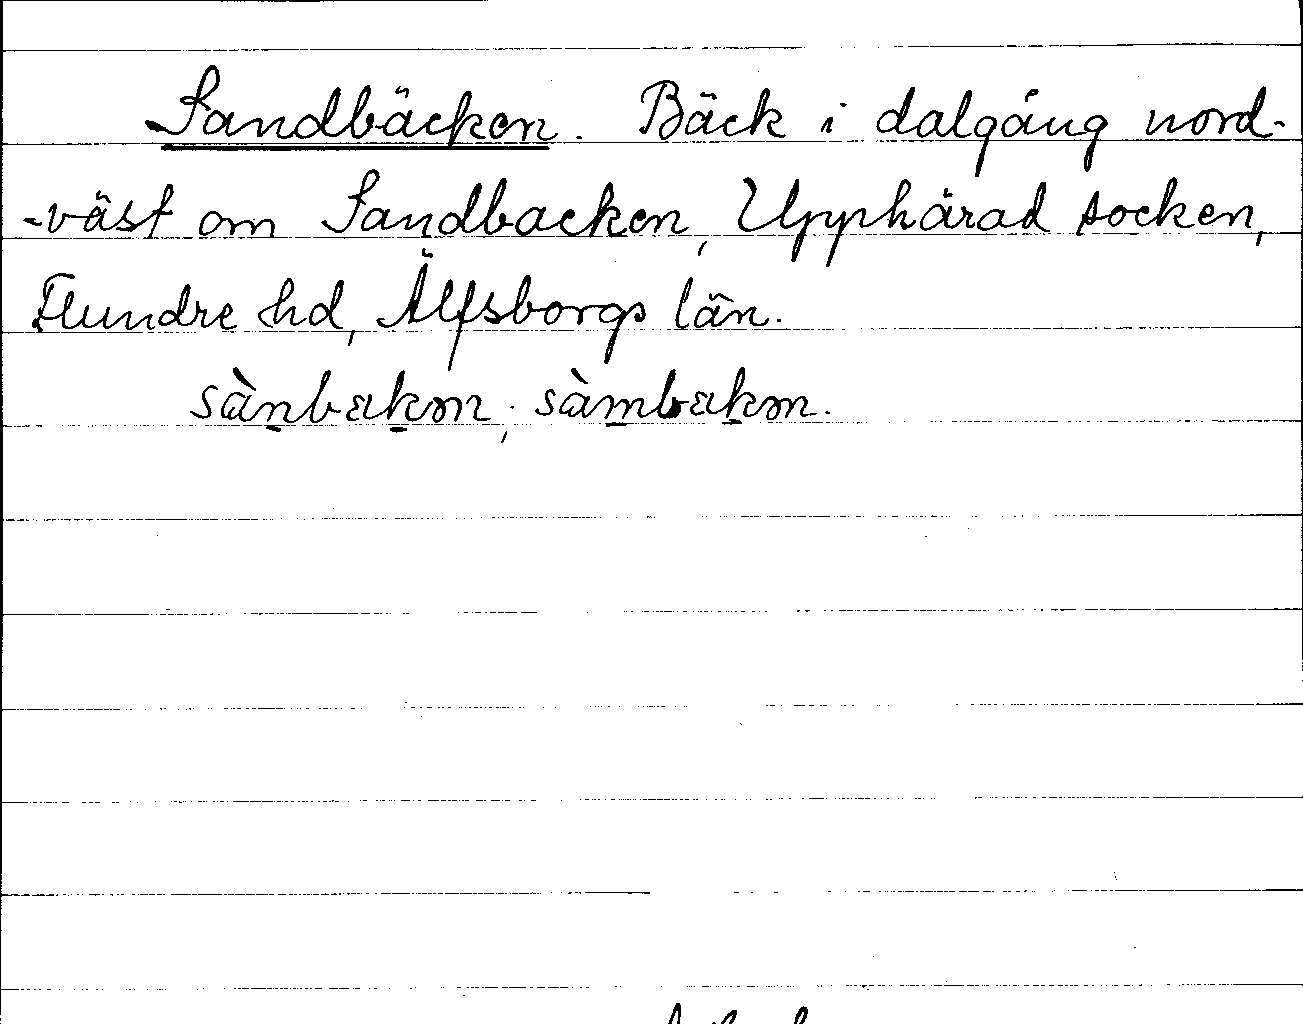 Sandbäcken. Bäck i dalgång nord-
-väst om Sandbacken, Upphärad socken,
Flundre hd, Älfsborgs län.
sànbækən; sàmbækən.